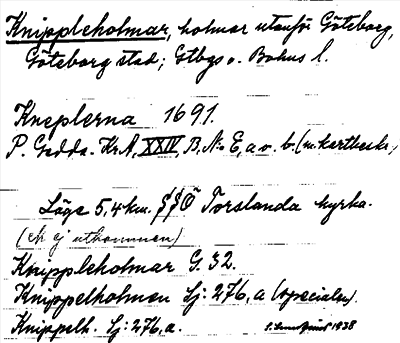 Knippleholmar, holmar utanför Göteborg,
Göteborg stad; Gtbgs o. Bohus l.
Kneplerna 1691.
P. Gedda. Kr.A, XXIV, B, No E, a o. b. (m.kartbeskr.)
Läge 5,4 km. SSÖ Torslanda kyrka.
(ek ej utkommen)
Knippleholmar G. 32.
Knippelholmen Sj: 276, a (specialen).
Knippelh. Sj: 276, a. 1938